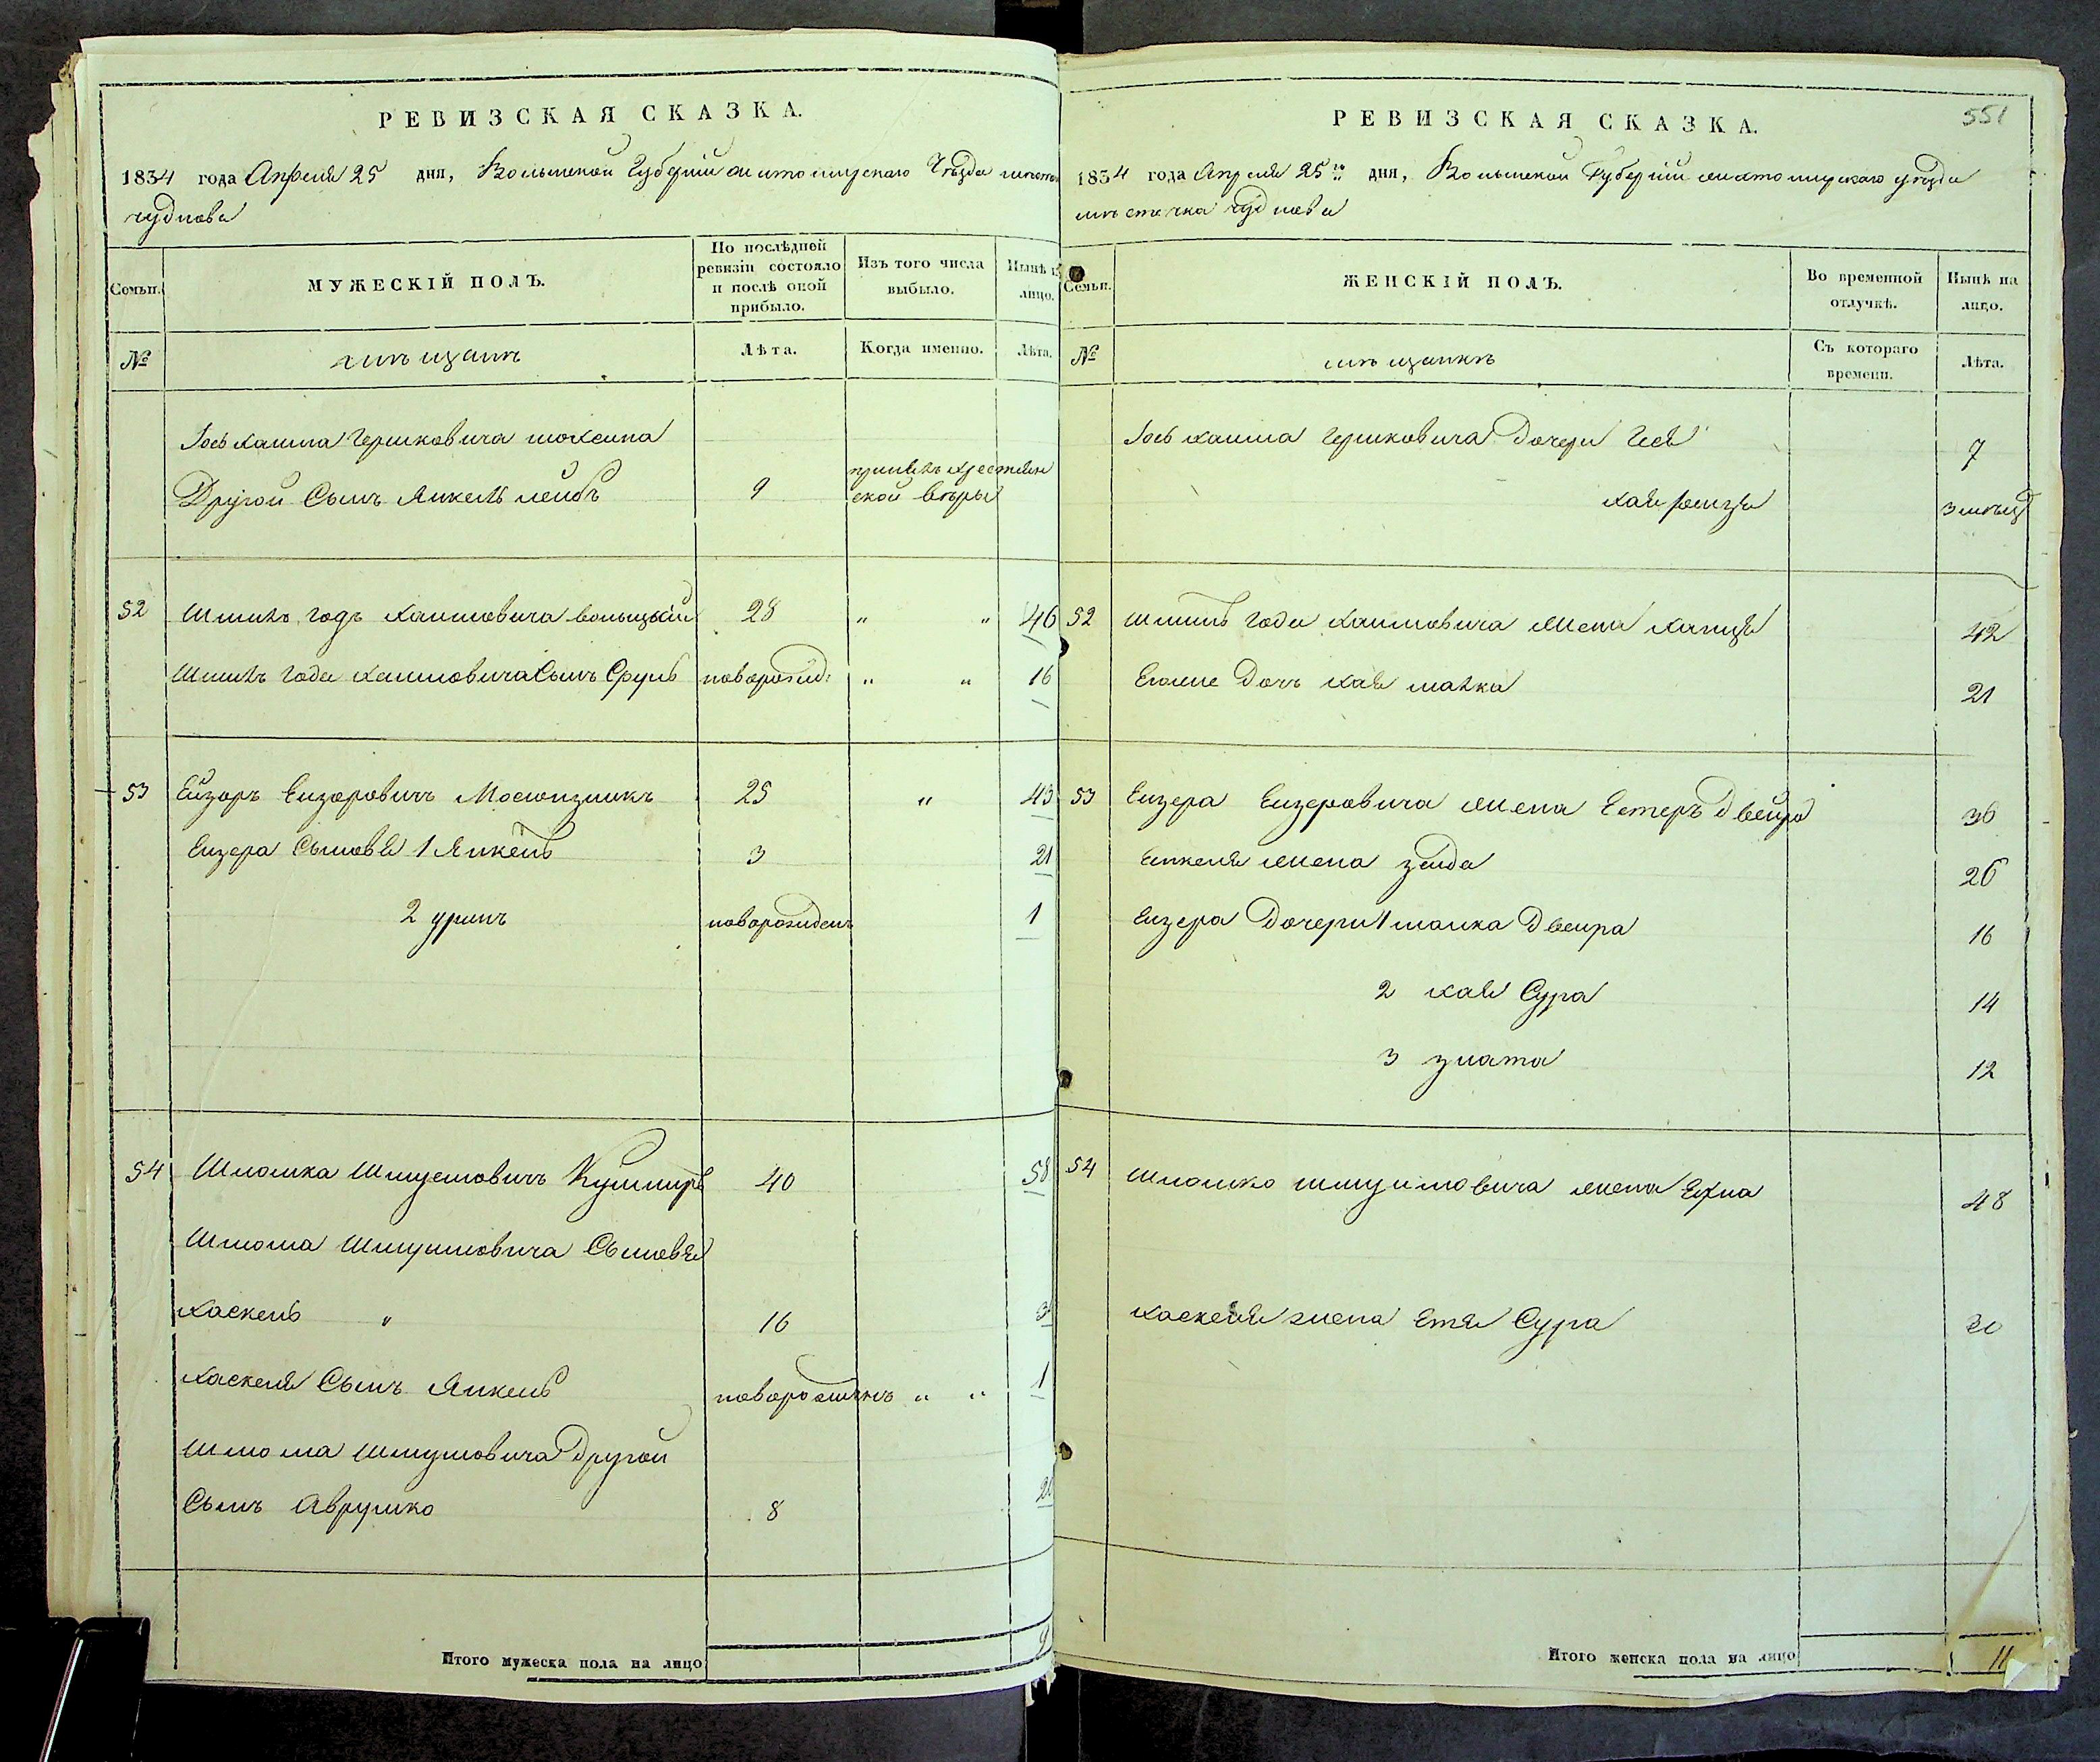 РЕВИЗСКАЯ СКАЗКА.
1834 года Апреля 25 дня, Волынской Губернии Житомирскаго Уѣзда
чуднова
Семьи.
МУЖЕСКІЙ ПОЛЪ.
По послѣдней ревизіи состояло и послѣ оной прибыло.
Изъ того числа выбыло.
Нынѣ
лицо.
№
мѣщанъ
Лѣта.
Когда именно.
Лѣта.
Іось хаима Гершковича
Другой Сынъ Янкель лейбъ 9 ской вѣры
52 Шмиль годъ хаимовича 28 " " 46
Шмиль годе хаимовича Сынъ Сруль новорожд: " " 16
53 Ейзоръ Ейзоровичъ 25 " 43
Ейзера Сыновя 1 Янкель 3 21
2 новорожденъ 1
54 Шломка Шмулёвичъ Кушниръ 40 58
Шлома Шмулiовича Сыновя
хаскель " 16
хаскеля Сынъ Янкель " " 1
Шлома Шмулiовича Другой
Сынъ Аврумко 8
Итого мужеска пола на лицо
551
РЕВИЗСКАЯ СКАЗКА.
1834 года Апреля 25го дня, Волынской Губернии житомирскаго уѣзда
мѣстечка чуднова
Семьи.
ЖЕНСКІЙ ПОЛЪ.
Во временной отлучкѣ.
Нынѣ на лицо.
№
мѣщанкъ
Съ котораго времени.
Лѣта.
Іось хаима Гершковича Дочери 7
хая 3 мѣсяц
52 Шмиль годе хаимовича жена 42
Дочь хая малка 21
53 Ейзера Ейзеровича жена Естеръ двейра 36
Янкеля жена 26
Ейзера Дочери 1 малка Двейра 16
2 хая Сура 14
3 злата 12
54 Шломко шмулiовича жена 48
хаскеля жена Етя Сура
Итого женска пола на лицо 11